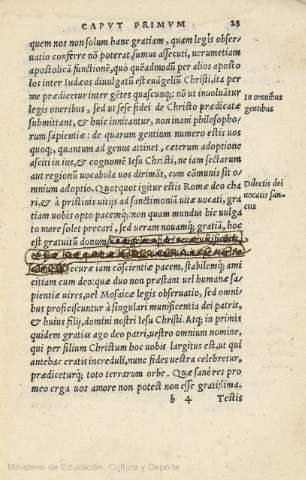 CAPVT PRIMVM 23
quem nos non solum hanc gratiam, quam legis obser-
uatio conferre nõ poterat, sumus assecuti, uerumetiam
apostolicã functionẽ, quo quẽadmodũ per alios aposto
los inter Iudæos diuulgatũ est euãgeliũ Christi, ita per
me prædicetur inter gẽtes quascunq;: nõ ut inuoluãtur
legis oneribus, sed ut sese fidei de Christo prædicatæ
In omnibus
gentibus
submittant, & huic innitantur, non inani philosopho-
rum sapientiæ: de quarum gentium numero estis uos
quoq;, quantum ad genus attinet, cæterum adoptione
asciti in ius, & cognomẽ Iesu Christi, ne iam sectarum
aut regionũ uocabula uos dirimãt, cum cõmunis sit o-
mnium adoptio. Quotquot igitur estis Romæ deo cha
Dilectis dei
uocatis san-
ctis
ri, & à pristinis uitijs ad sanctimoniã uitæ uocati, gra
tiam uobis opto pacemq;: non quam mundus hic uulga
to more solet precari, sed ueram nouamq; gratiã, hoc
est gratuitũ donum
securæ iam cõscientiæ pacem, stabilemq; ami
citiam cum deo: quæ duo non præstant uel humanæ sa-
pientiæ uires, uel Mosaicæ legis obseruatio, sed omni
bus proficiscuntur à singulari munificentia dei patris,
& huius filij, domini nestri Iesu Christi. Atq; in primis
quidem gratias ago deo patri, uestro omnium nomine,
qui per filium Christum hoc uobis largitus est, ut qui
antehac eratis increduli, nunc fides uestra celebretur,
prædiceturq; toto terrarum orbe. Quæ sanè res pro
meo erga uos amore non potest non esse gratissima.
b 4 Testis
Ministerio de Educación, Cultura y Deporte